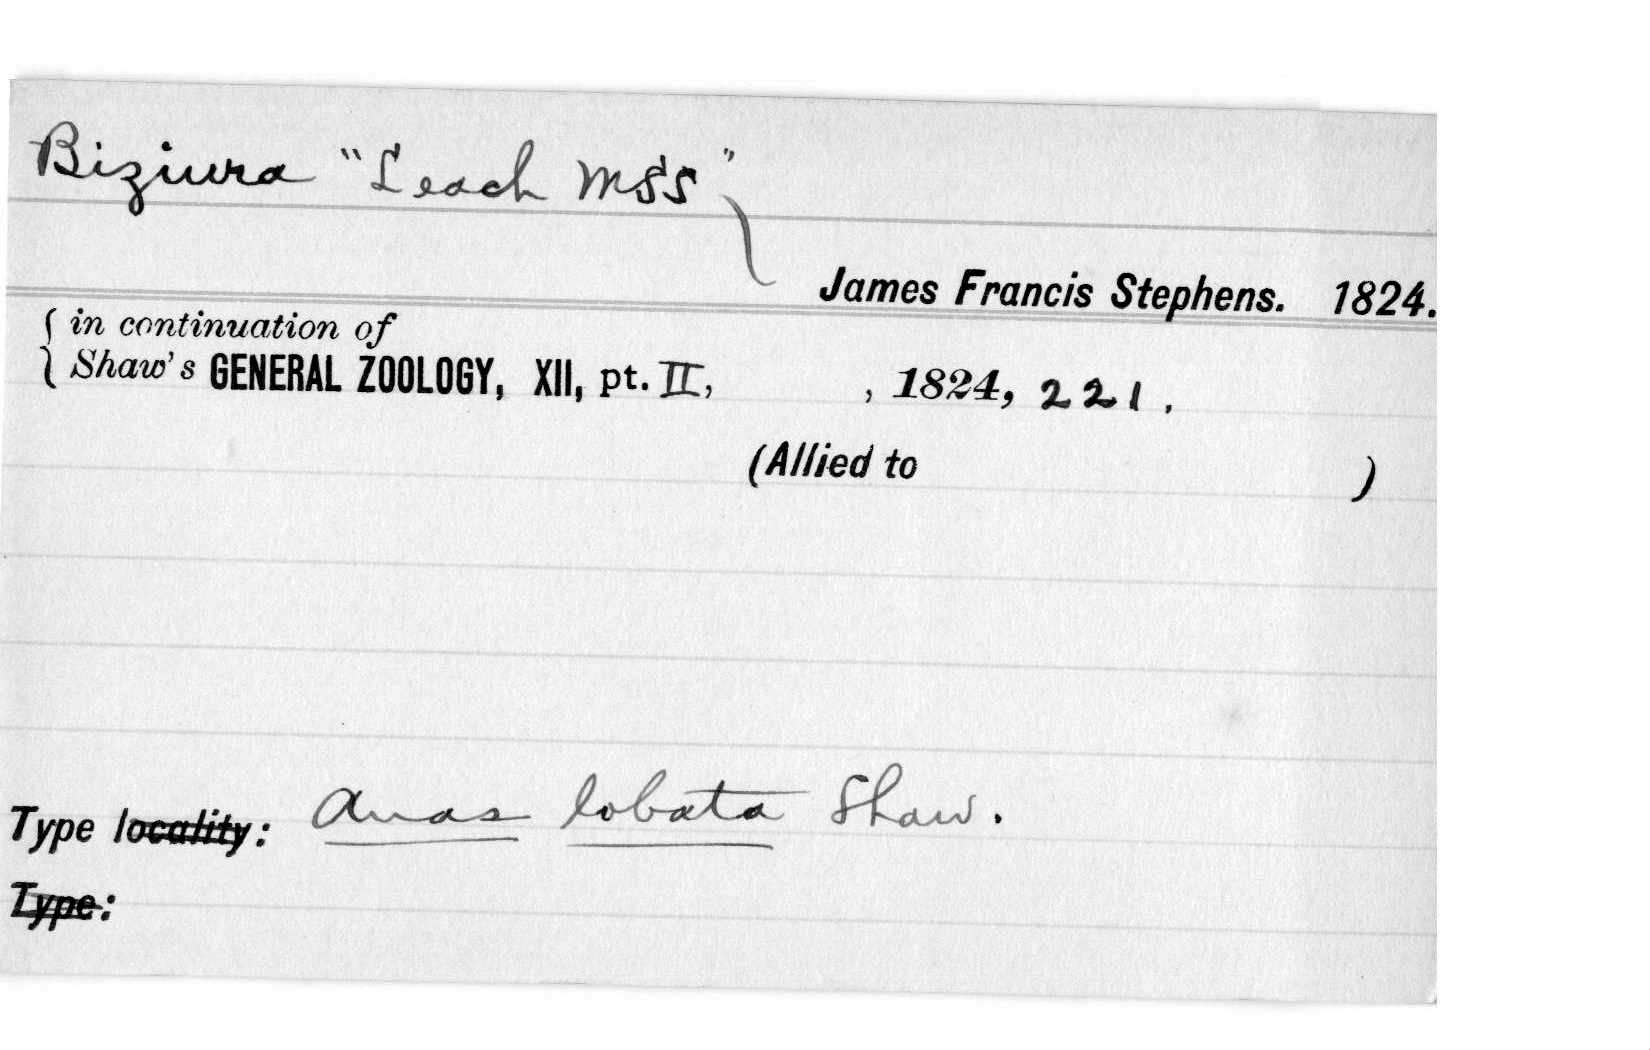 Biziura "Leach MSS"
James Francis Stephens. 1824.
in continuation of
Shaw's GENERAL ZOOLOGY, XII, pt. II, , 1824, 221.
(Allied to )
Type locality: Anas lobata Shaw.
Type: